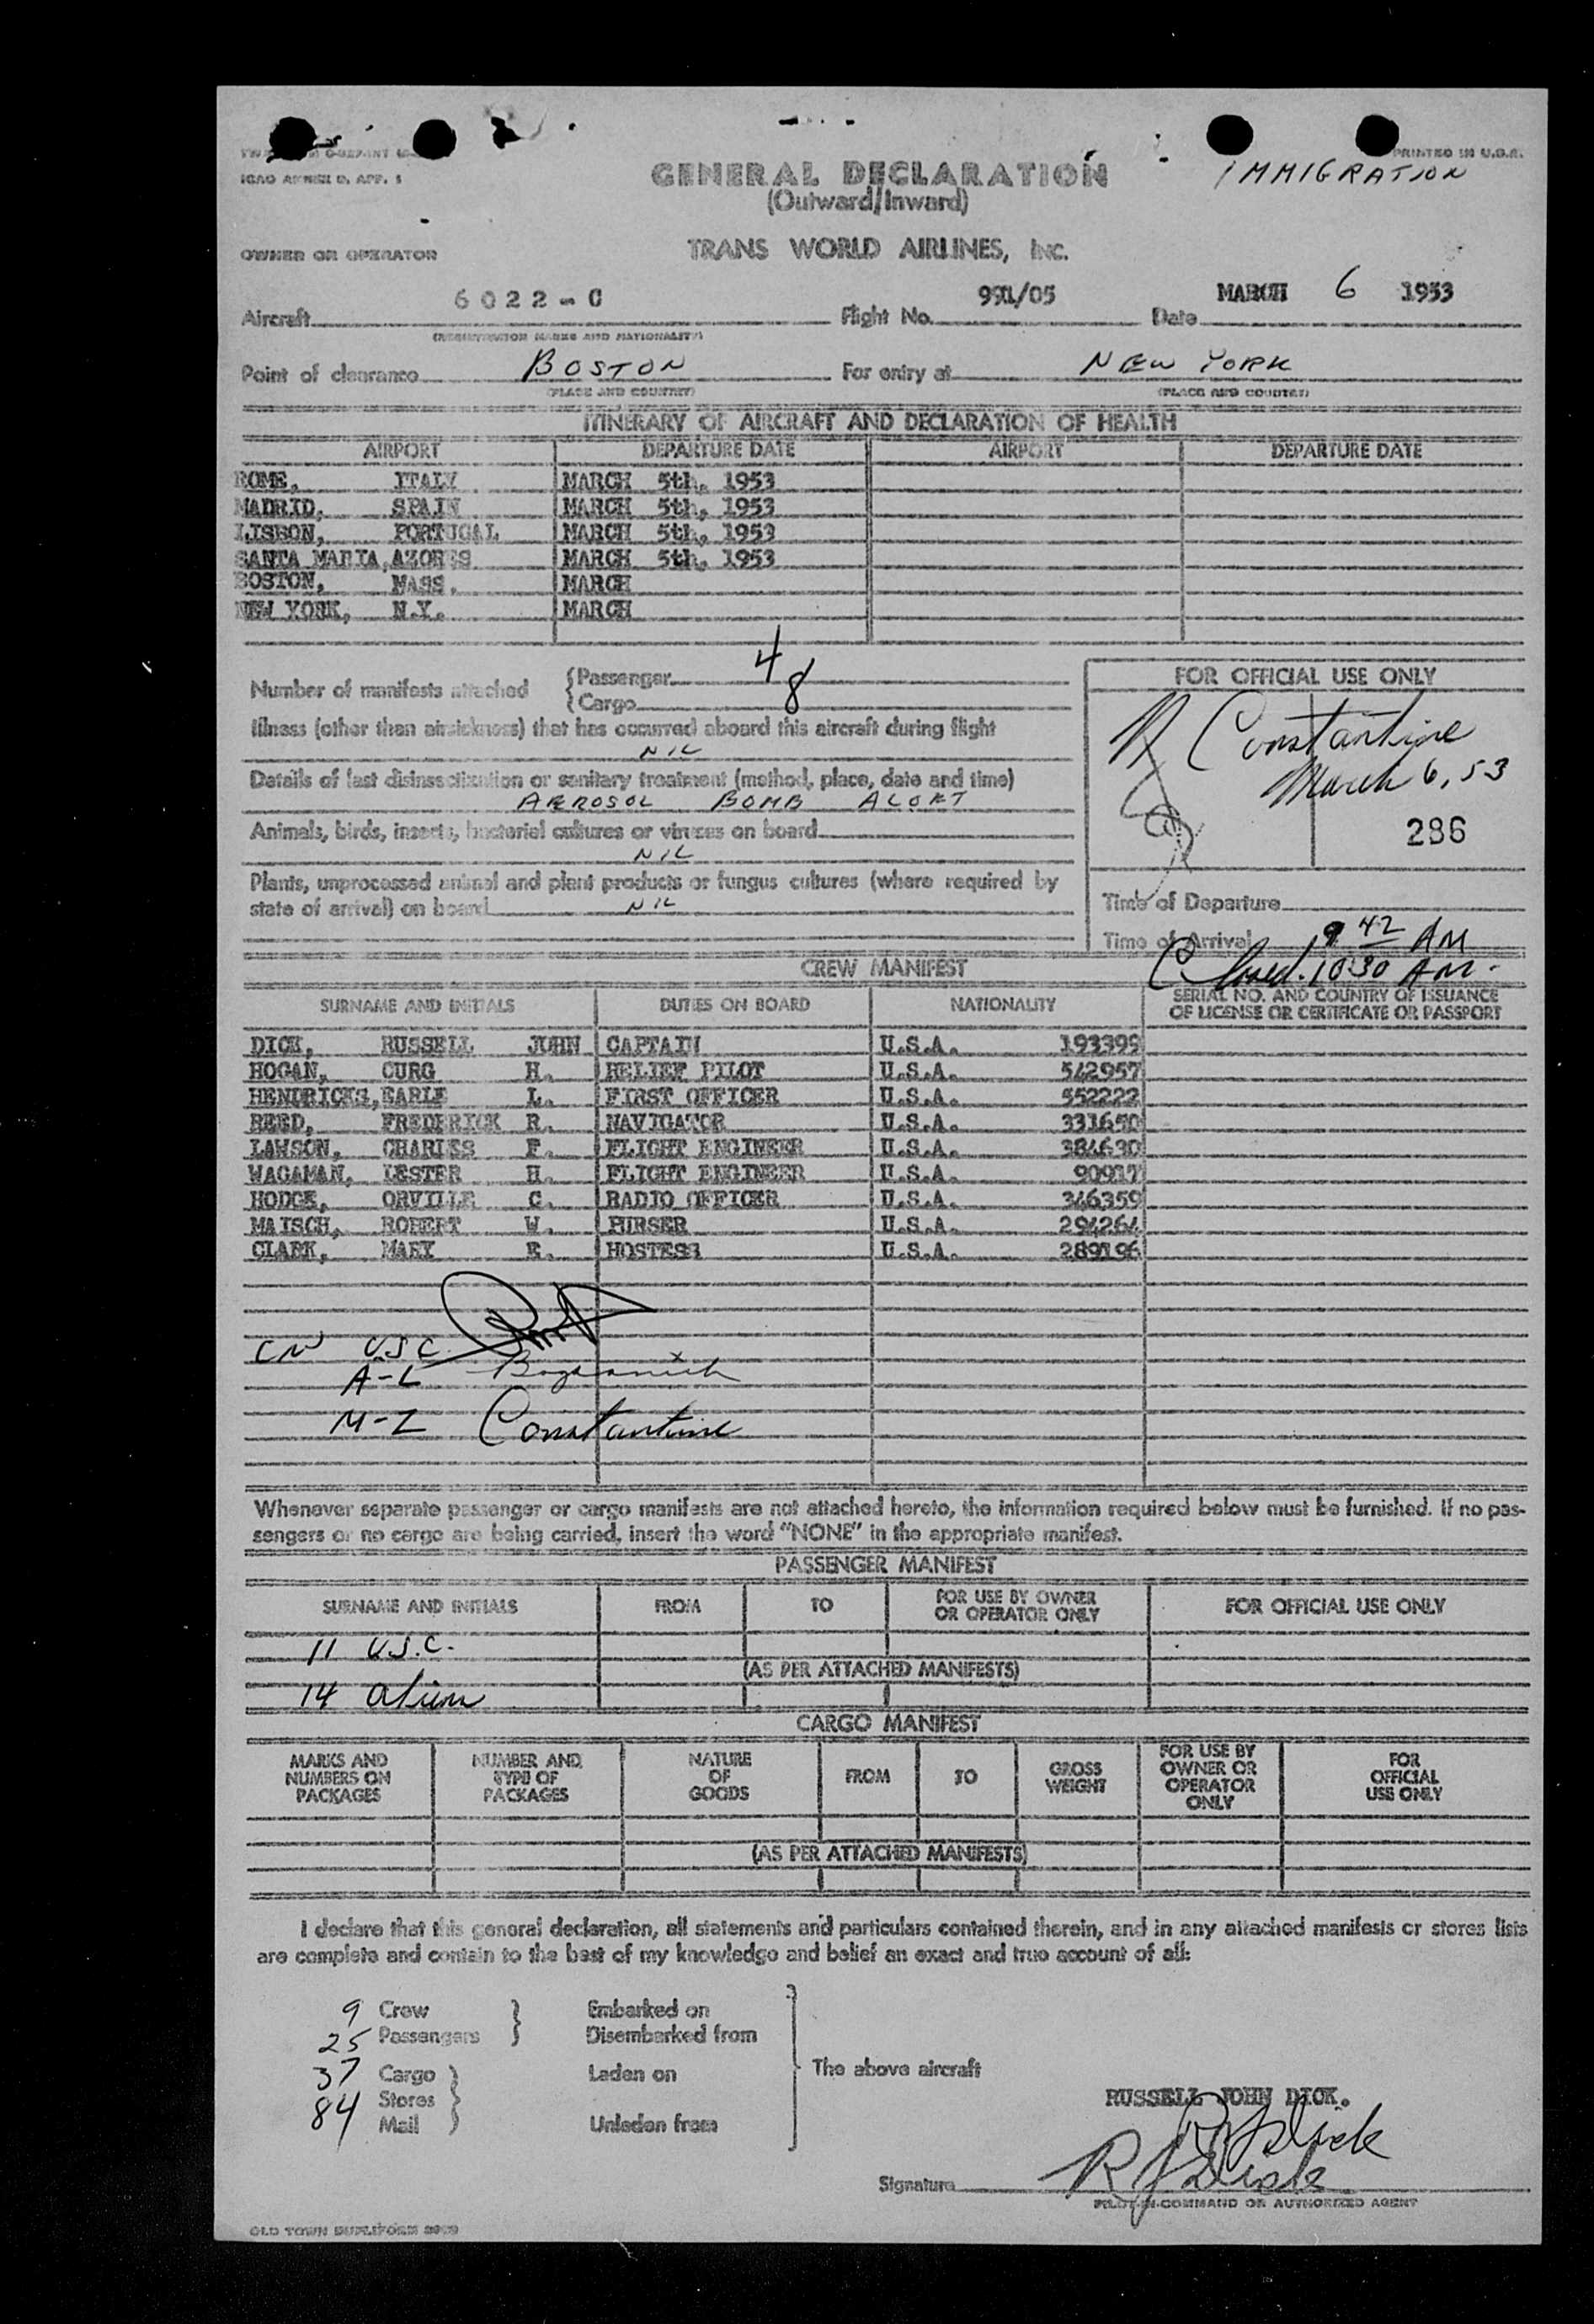 PRINTED IN U.S.A.
ICAO ANNEX 9, APP. 1
IMMIGRATION
GENERAL DECLARATION
(Outward/Inward)
OWNER OR OPERATOR TRANS WORLD AIRLINES, INC.
Aircraft 6022-C Flight No. 991/05 Date MARCH 6 1953
(REGISTRATION MARKS AND NATIONALITY)
Point of clearance BOSTON For entry at NEW YORK
(PLACE AND COUNTRY) (PLACE AND COUNTRY)
ITINERARY OF AIRCRAFT AND DECLARATION OF HEALTH
AIRPORT DEPARTURE DATE AIRPORT DEPARTURE DATE
ROME, ITALY MARCH 5th, 1953
MADRID, SPAIN MARCH 5th, 1953
LISBON, PORTUGAL MARCH 5th, 1953
SANTA MARIA, AZORES MARCH 5th, 1953
BOSTON, MASS. MARCH
NEW YORK, N.Y. MARCH
Number of manifests attached
Passenger 4
Cargo 8
Illness (other than airsickness) that has occurred aboard this aircraft during flight
NIL
Details of last disinsectization or sanitary treatment (method, place, date and time)
AEROSOL BOMB ALOFT
Animals, birds, insects, bacterial cultures or viruses on board
NIL
Plants, unprocessed animal and plant products or fungus cultures (where required by
state of arrival) on board NIL
FOR OFFICIAL USE ONLY
Constantine
March 6, 53
286
Time of Departure
Time of Arrival 9 42 AM
Closed 10:30 AM.
CREW MANIFEST
SURNAME AND INITIALS DUTIES ON BOARD NATIONALITY SERIAL NO. AND COUNTRY OF ISSUANCE
OF LICENSE OR CERTIFICATE OR PASSPORT
DICK, RUSSELL JOHN CAPTAIN U.S.A. 193399
HOGAN, CURG H. RELIEF PILOT U.S.A. 542957
HENDRICKS, EARLE L. FIRST OFFICER U.S.A. 552222
REED, FREDERICK R. NAVIGATOR U.S.A. 331650
LAWSON, CHARLES F. FLIGHT ENGINEER U.S.A. 384630
WAGAMAN, LESTER H. FLIGHT ENGINEER U.S.A. 90917
HODGE, ORVILLE C. RADIO OFFICER U.S.A. 346359
MAISCH, ROBERT W. PURSER U.S.A. 294264
CLARK, MARY E. HOSTESS U.S.A. 289196
CN U.S.C.
A-L
M-Z Constantine
Whenever separate passenger or cargo manifests are not attached hereto, the information required below must be furnished. If no pas-
sengers or no cargo are being carried, insert the word "NONE" in the appropriate manifest.
PASSENGER MANIFEST
SURNAME AND INITIALS FROM TO FOR USE BY OWNER OR OPERATOR ONLY FOR OFFICIAL USE ONLY
11 U.S.C.
(AS PER ATTACHED MANIFESTS)
14 Alien
CARGO MANIFEST
MARKS AND NUMBERS ON PACKAGES NUMBER AND TYPE OF PACKAGES NATURE OF GOODS FROM TO GROSS WEIGHT FOR USE BY OWNER OR OPERATOR ONLY FOR OFFICIAL USE ONLY
(AS PER ATTACHED MANIFESTS)
I declare that this general declaration, all statements and particulars contained therein, and in any attached manifests or stores lists
are complete and contain to the best of my knowledge and belief an exact and true account of all:
9 Crew Embarked on
25 Passengers Disembarked from
37 Cargo Laden on The above aircraft
Stores
84 Mail Unladen from
RUSSELL JOHN DICK.
R J Dick
Signature R J Dick
PILOT-IN-COMMAND OR AUTHORIZED AGENT